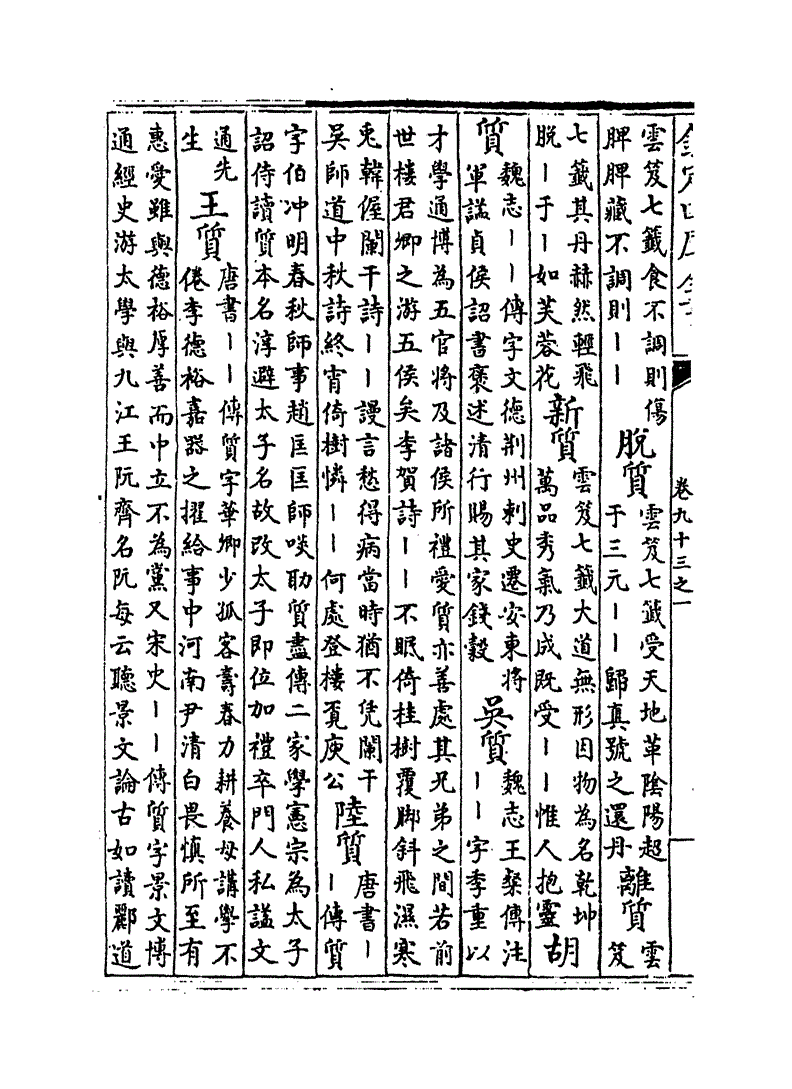 欽定四庫全書
卷九十三之一
雲笈七籤食不調則傷
脾脾藏不調則丨丨
脫質
雲笈七籤受天地革陰陽超
于三元丨丨歸真號之還丹
離質
雲
笈
七籤其丹赫然輕飛
脱丨于丨如芙蓉花
新質
雲笈七籤大道無形因物為名乾坤
萬品秀氣乃成既受丨丨惟人抱靈
胡
質
魏志丨丨傳字文德荆州刺史遷安東將
軍諡貞侯詔書褒述清行賜其家錢穀
吳質
魏志王粲傳注
丨丨字季重以
才學通博為五官將及諸侯所禮愛質亦善處其兄弟之間若前
世樓君卿之游五侯矣李賀詩丨丨不眠倚桂樹覆脚斜飛濕寒
兎韓偓闌干詩丨丨謾言愁得病當時猶不凭闌干
吳師道中秋詩終宵倚樹憐丨丨何處登樓覓庾公
陸質
唐書丨
丨傳質
字伯冲明春秋師事趙匡匡師啖助質盡傳二家學憲宗為太子
詔侍讀質本名淳避太子名故改太子即位加禮卒門人私諡文
通先
生
王質
唐書丨丨傳質字華卿少孤客壽春力耕養母講學不
倦李德裕嘉器之擢給事中河南尹清白畏慎所至有
惠愛雖與德裕厚善而中立不為黨又宋史丨丨傳質字景文博
通經史游太學與九江王阮齊名阮每云聽景文論古如讀酈道